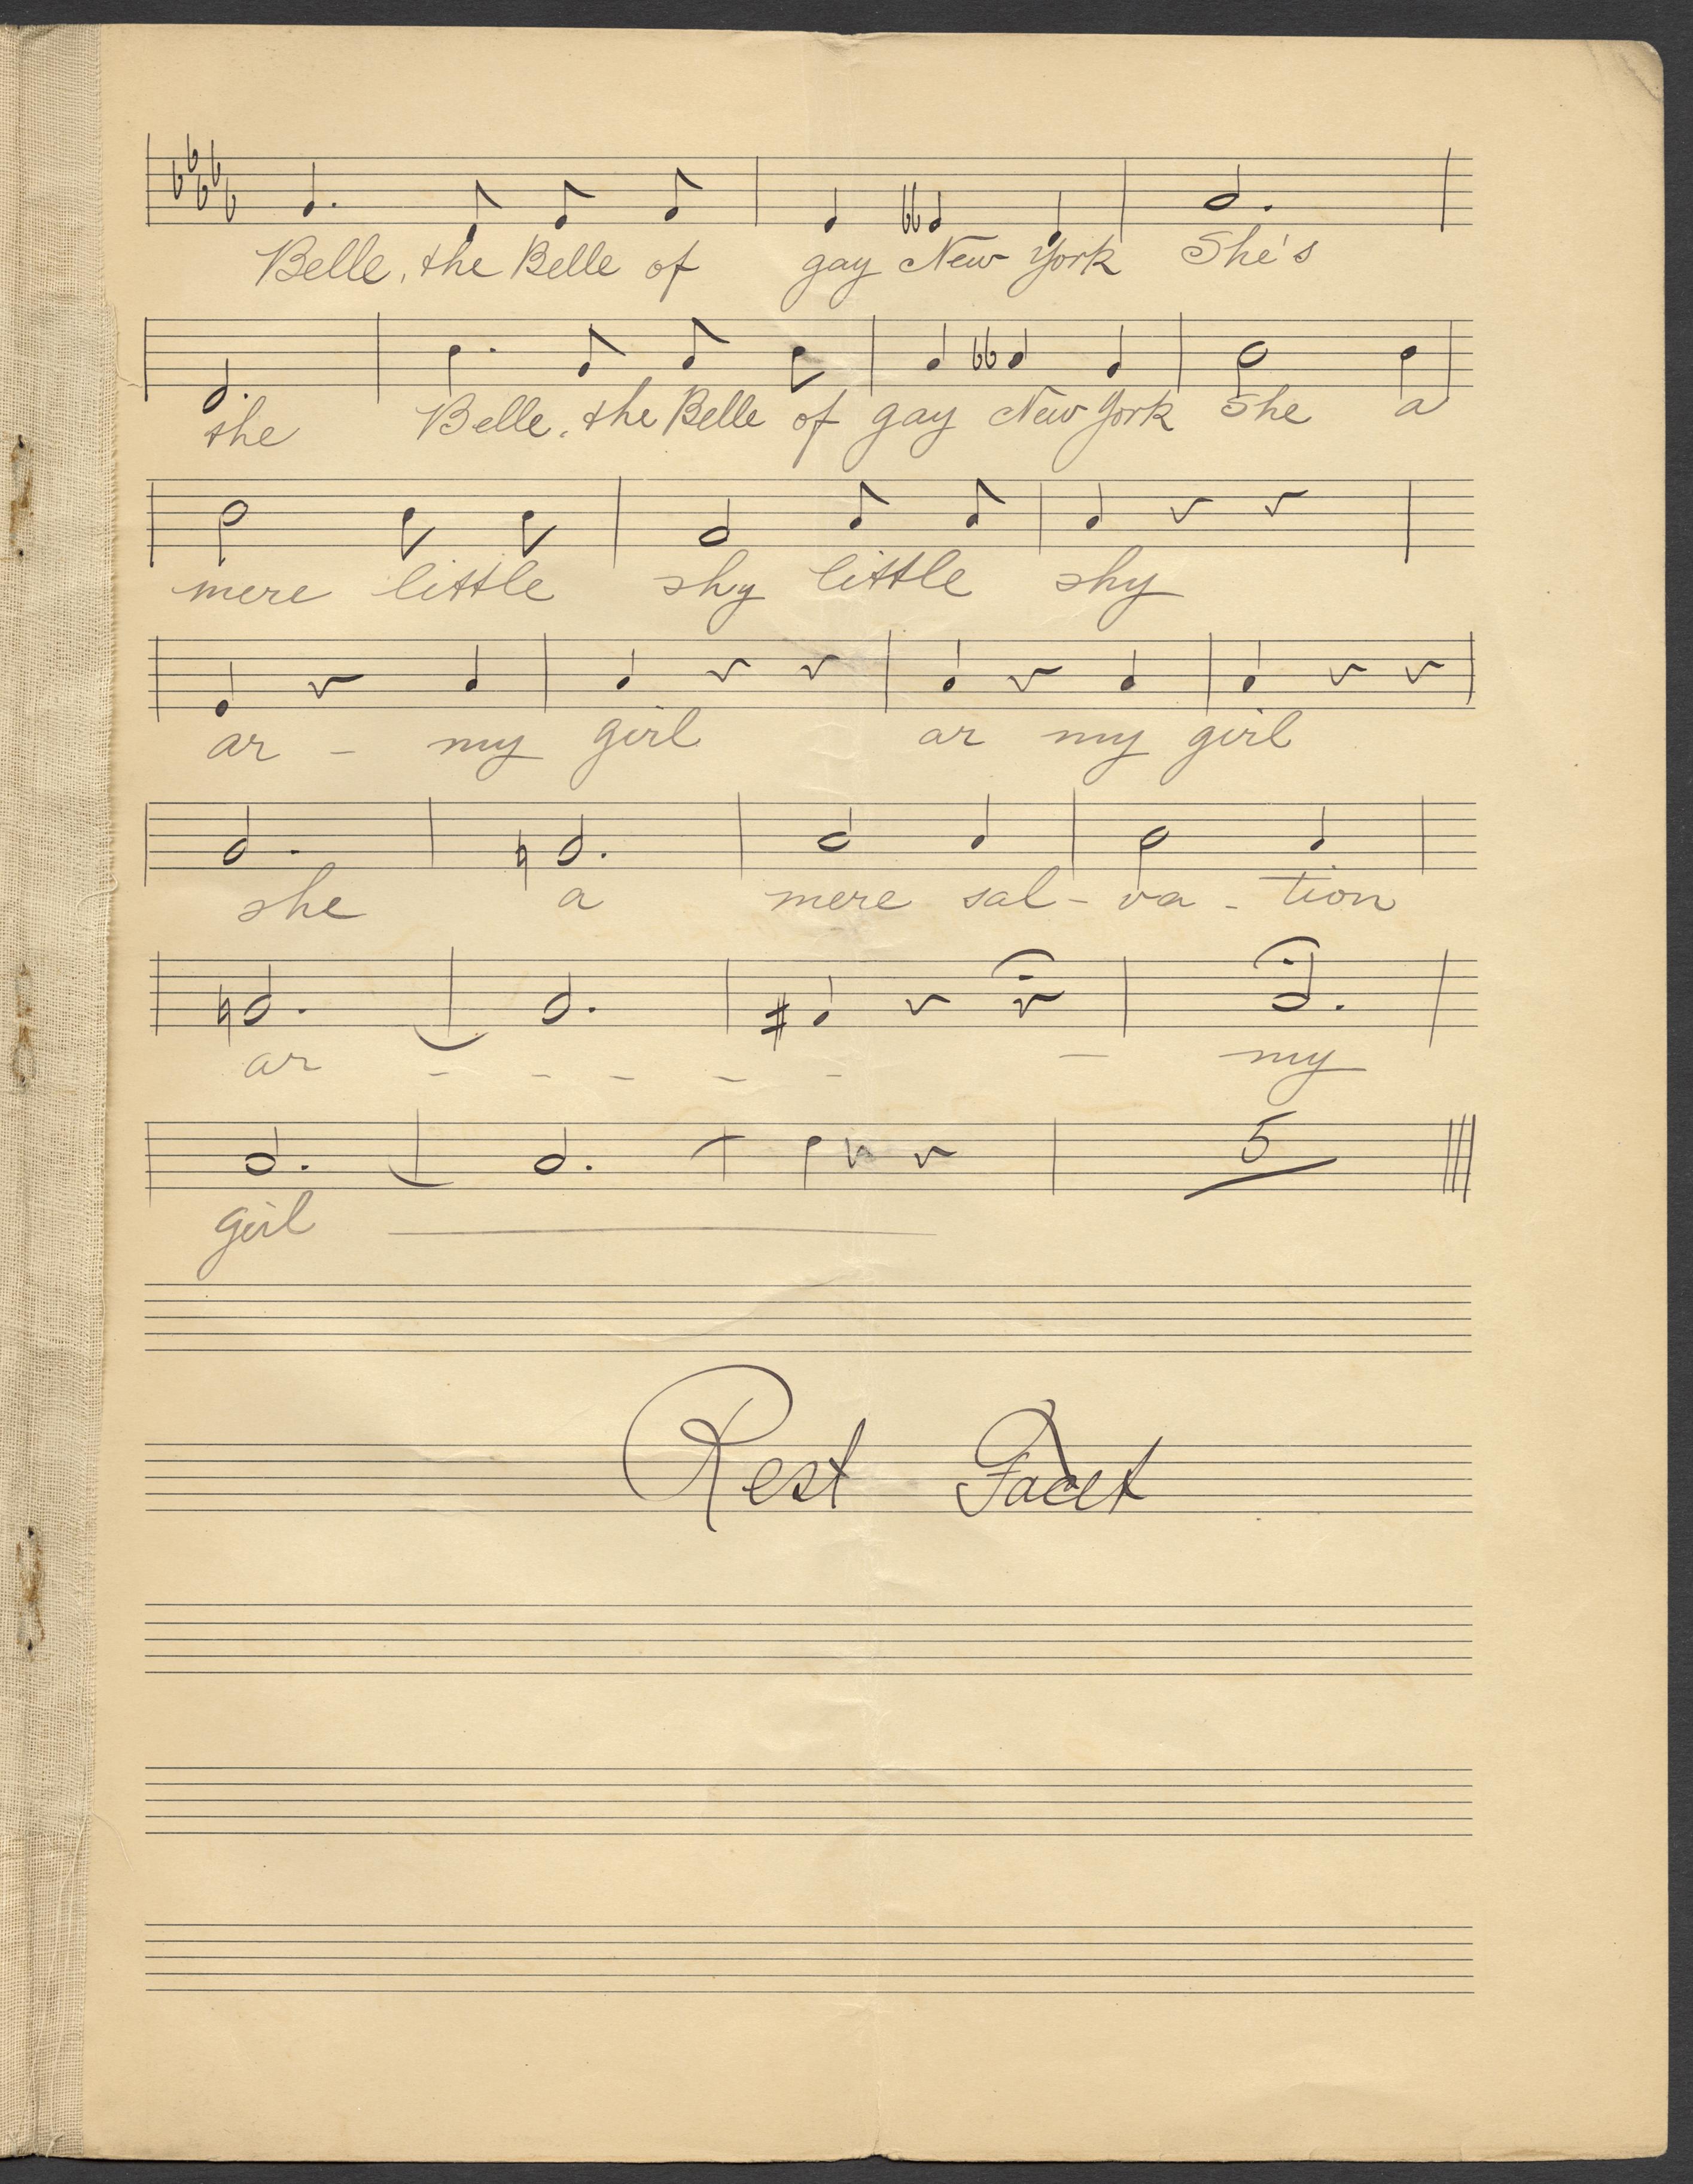 Belle, the Belle of gay New York She's
the Belle, the Belle of gay New York She a
mere little shy little shy
ar - my girl ar my girl
she a mere sal - va - tion
ar - - - - - - my
girl
5
Rest Facet